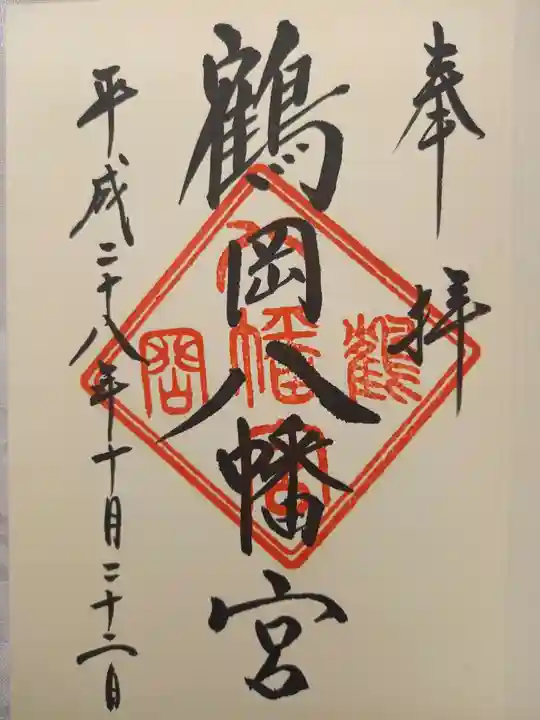 奉拝
鶴岡八幡宮
平成二十八年十月二十二日
鶴
八幡宮
岡